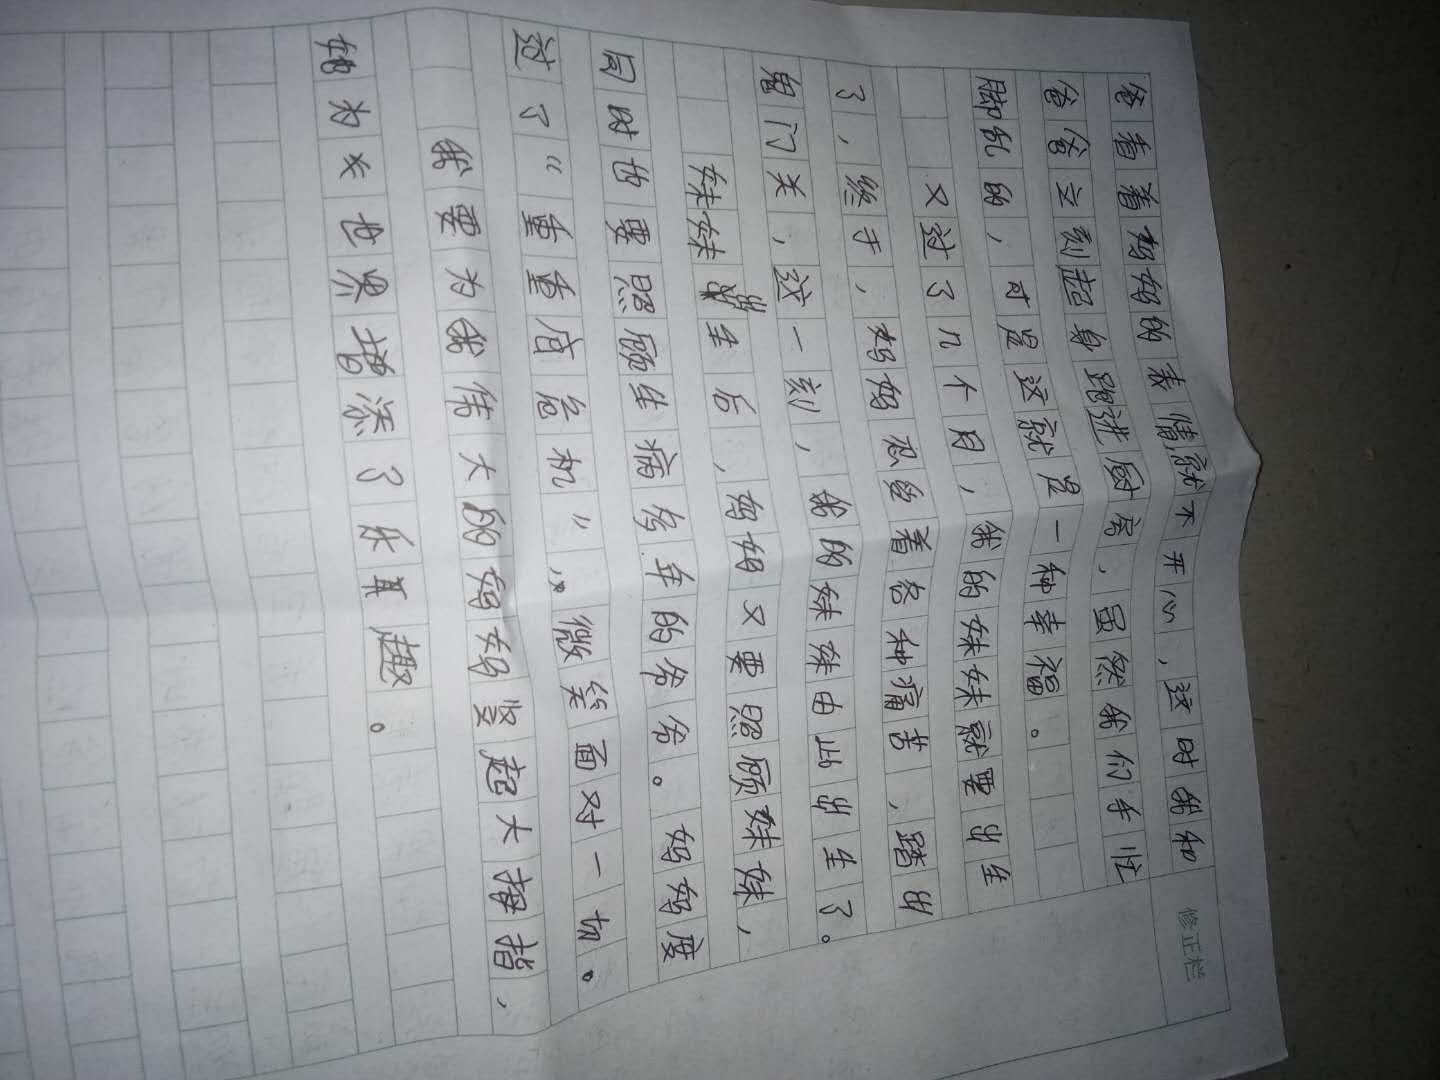 爸看着妈妈的表情就不开心，这时我和
爸爸立刻起身跑进厨房，虽然我们手忙
脚乱的，可是这就是一种幸福。
又过了几个月，我的妹妹就要出生
了，终于，妈妈忍受着各种痛苦，踏出
鬼门关，这一刻，我的妹妹由此出生了。
妹妹出生后，妈妈又要照顾妹妹，
同时也要照顾生病多年的爷爷。妈妈度
过了“重重危机”，微笑面对一切。
我要为我伟大的妈妈竖起大拇指，
她为世界增添了乐趣。
修正栏